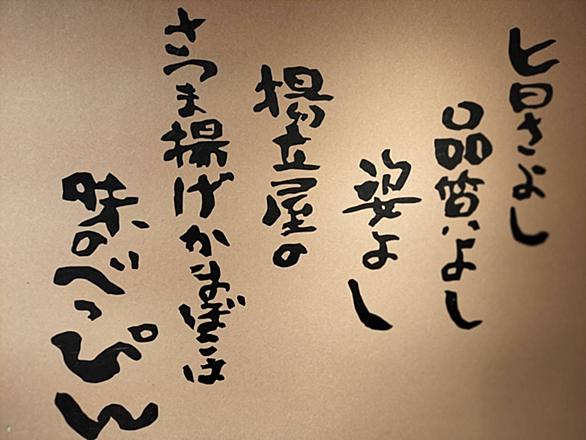 旨さよし
品質よし
姿よし
揚立屋の
さつま揚げかまぼこは
味のべっぴん